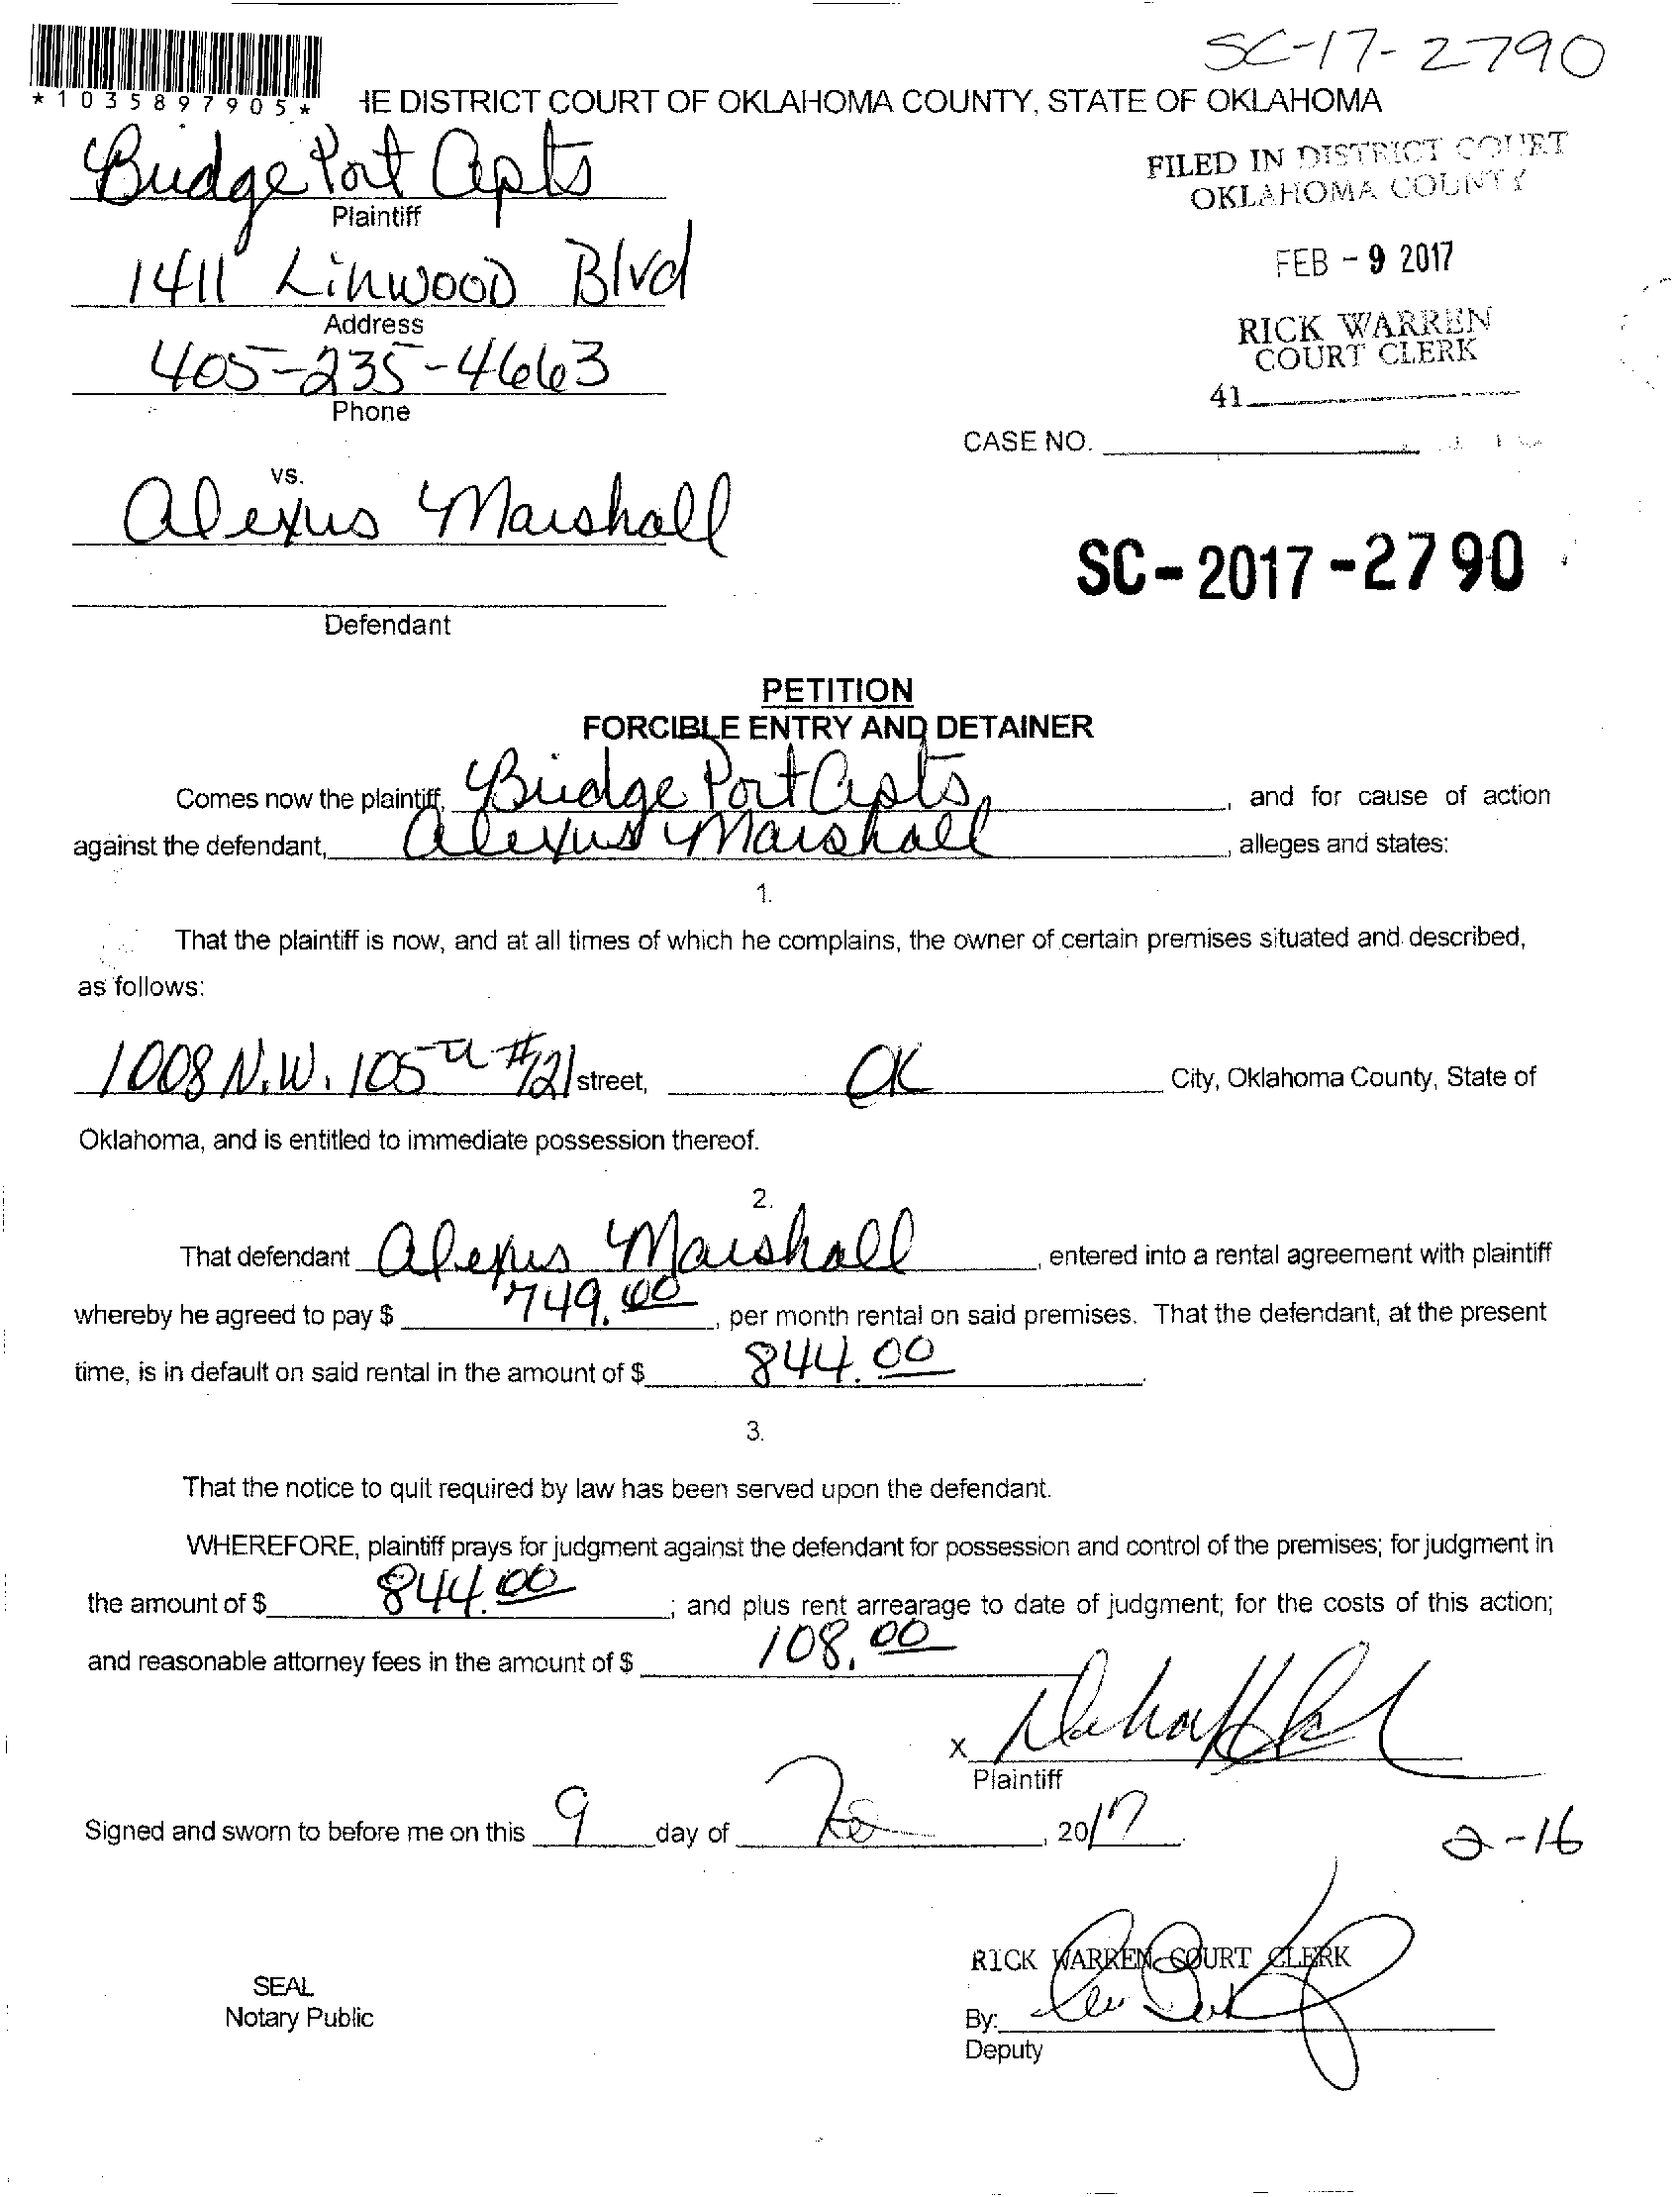 SC-17-2790
*1035897905*
HE DISTRICT COURT OF OKLAHOMA COUNTY, STATE OF OKLAHOMA
Bridge Port Apts
Plaintiff
FILED IN DISTRICT COURT
OKLAHOMA COUNTY
1411 Linwood Blvd
Address
FEB - 9 2017
RICK WARREN
COURT CLERK
405-235-4663
Phone
41
CASE NO.
vs.
Alexus Marshall
SC-2017-2790
Defendant
PETITION
FORCIBLE ENTRY AND DETAINER
Comes now the plaintiff, Bridge Port Apts, and for cause of action
against the defendant, Alexus Marshall, alleges and states:
1.
That the plaintiff is now, and at all times of which he complains, the owner of certain premises situated and described,
as follows:
1008 N.W. 105th #121 street, OK City, Oklahoma County, State of
Oklahoma, and is entitled to immediate possession thereof.
2.
That defendant Alexus Marshall, entered into a rental agreement with plaintiff
whereby he agreed to pay $ 749.00, per month rental on said premises. That the defendant, at the present
time, is in default on said rental in the amount of $ 844.00.
3.
That the notice to quit required by law has been served upon the defendant.
WHEREFORE, plaintiff prays for judgment against the defendant for possession and control of the premises; for judgment in
the amount of $ 844.00; and plus rent arrearage to date of judgment; for the costs of this action;
and reasonable attorney fees in the amount of $ 108.00
X
Plaintiff
Signed and sworn to before me on this 9 day of Feb, 2017.
2-16
RICK WARREN COURT CLERK
SEAL
Notary Public
By:
Deputy